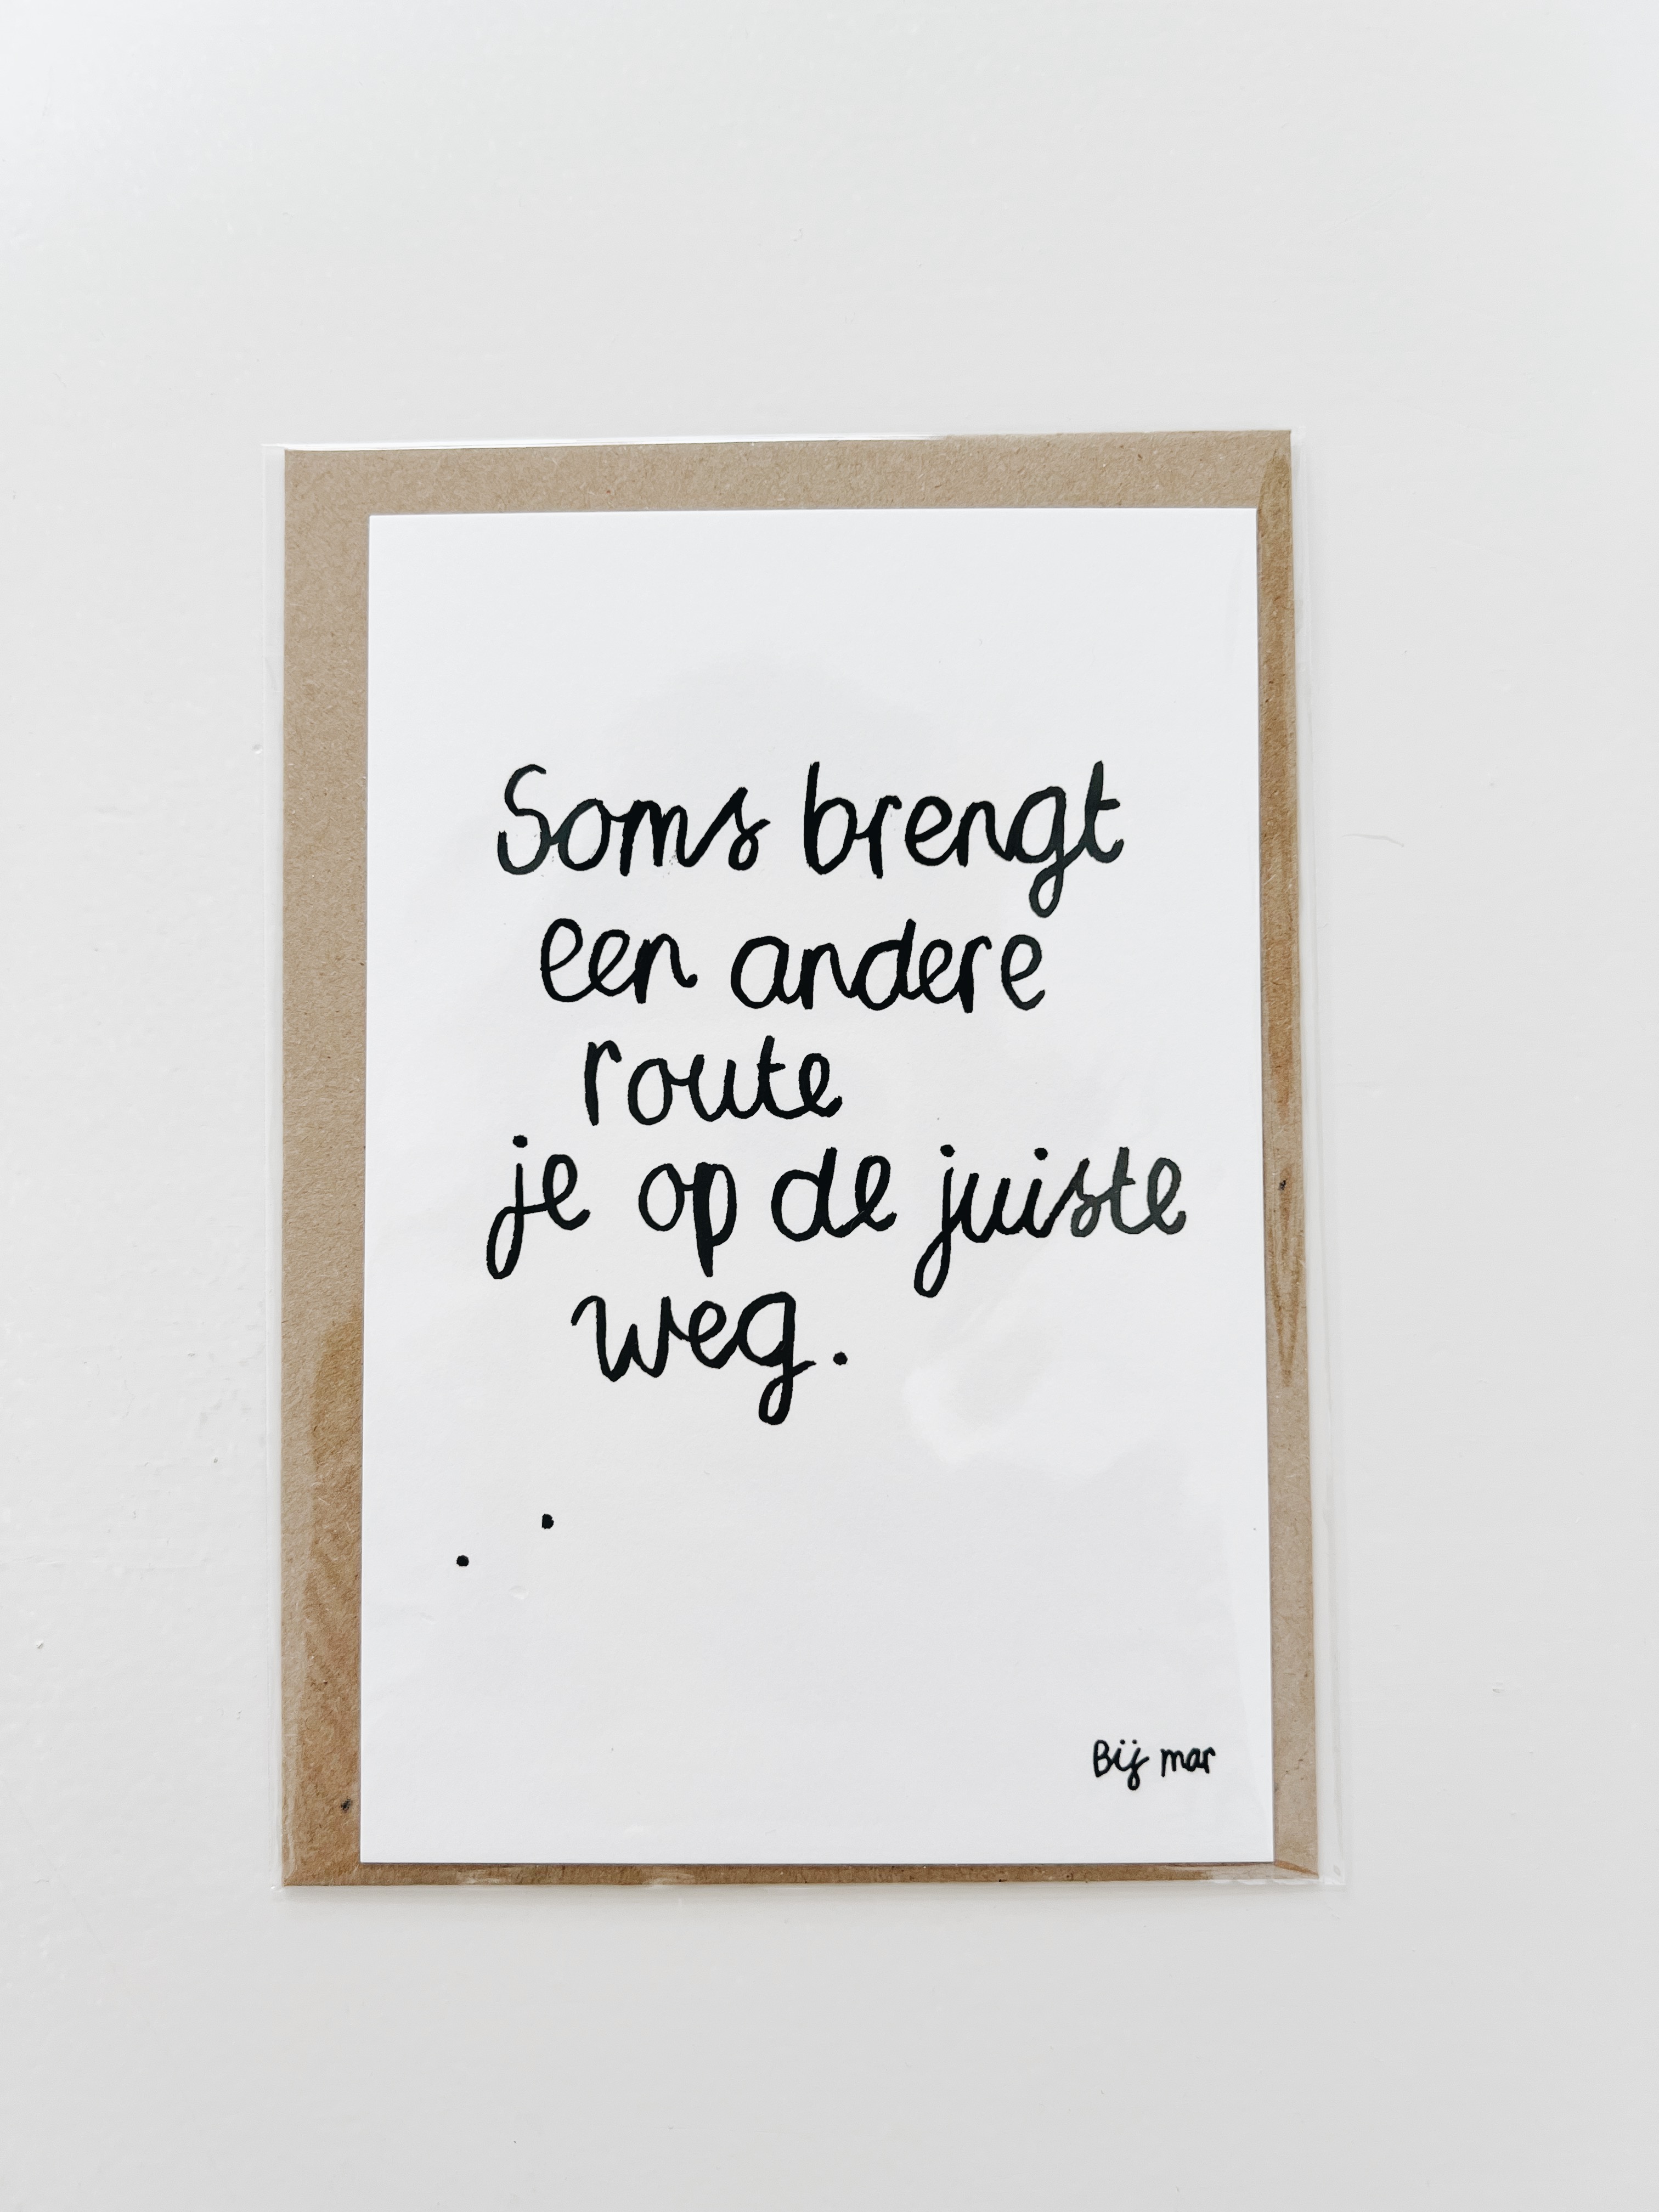 Soms brengt
een andere
route
je op de juiste
weg.
Bij mar